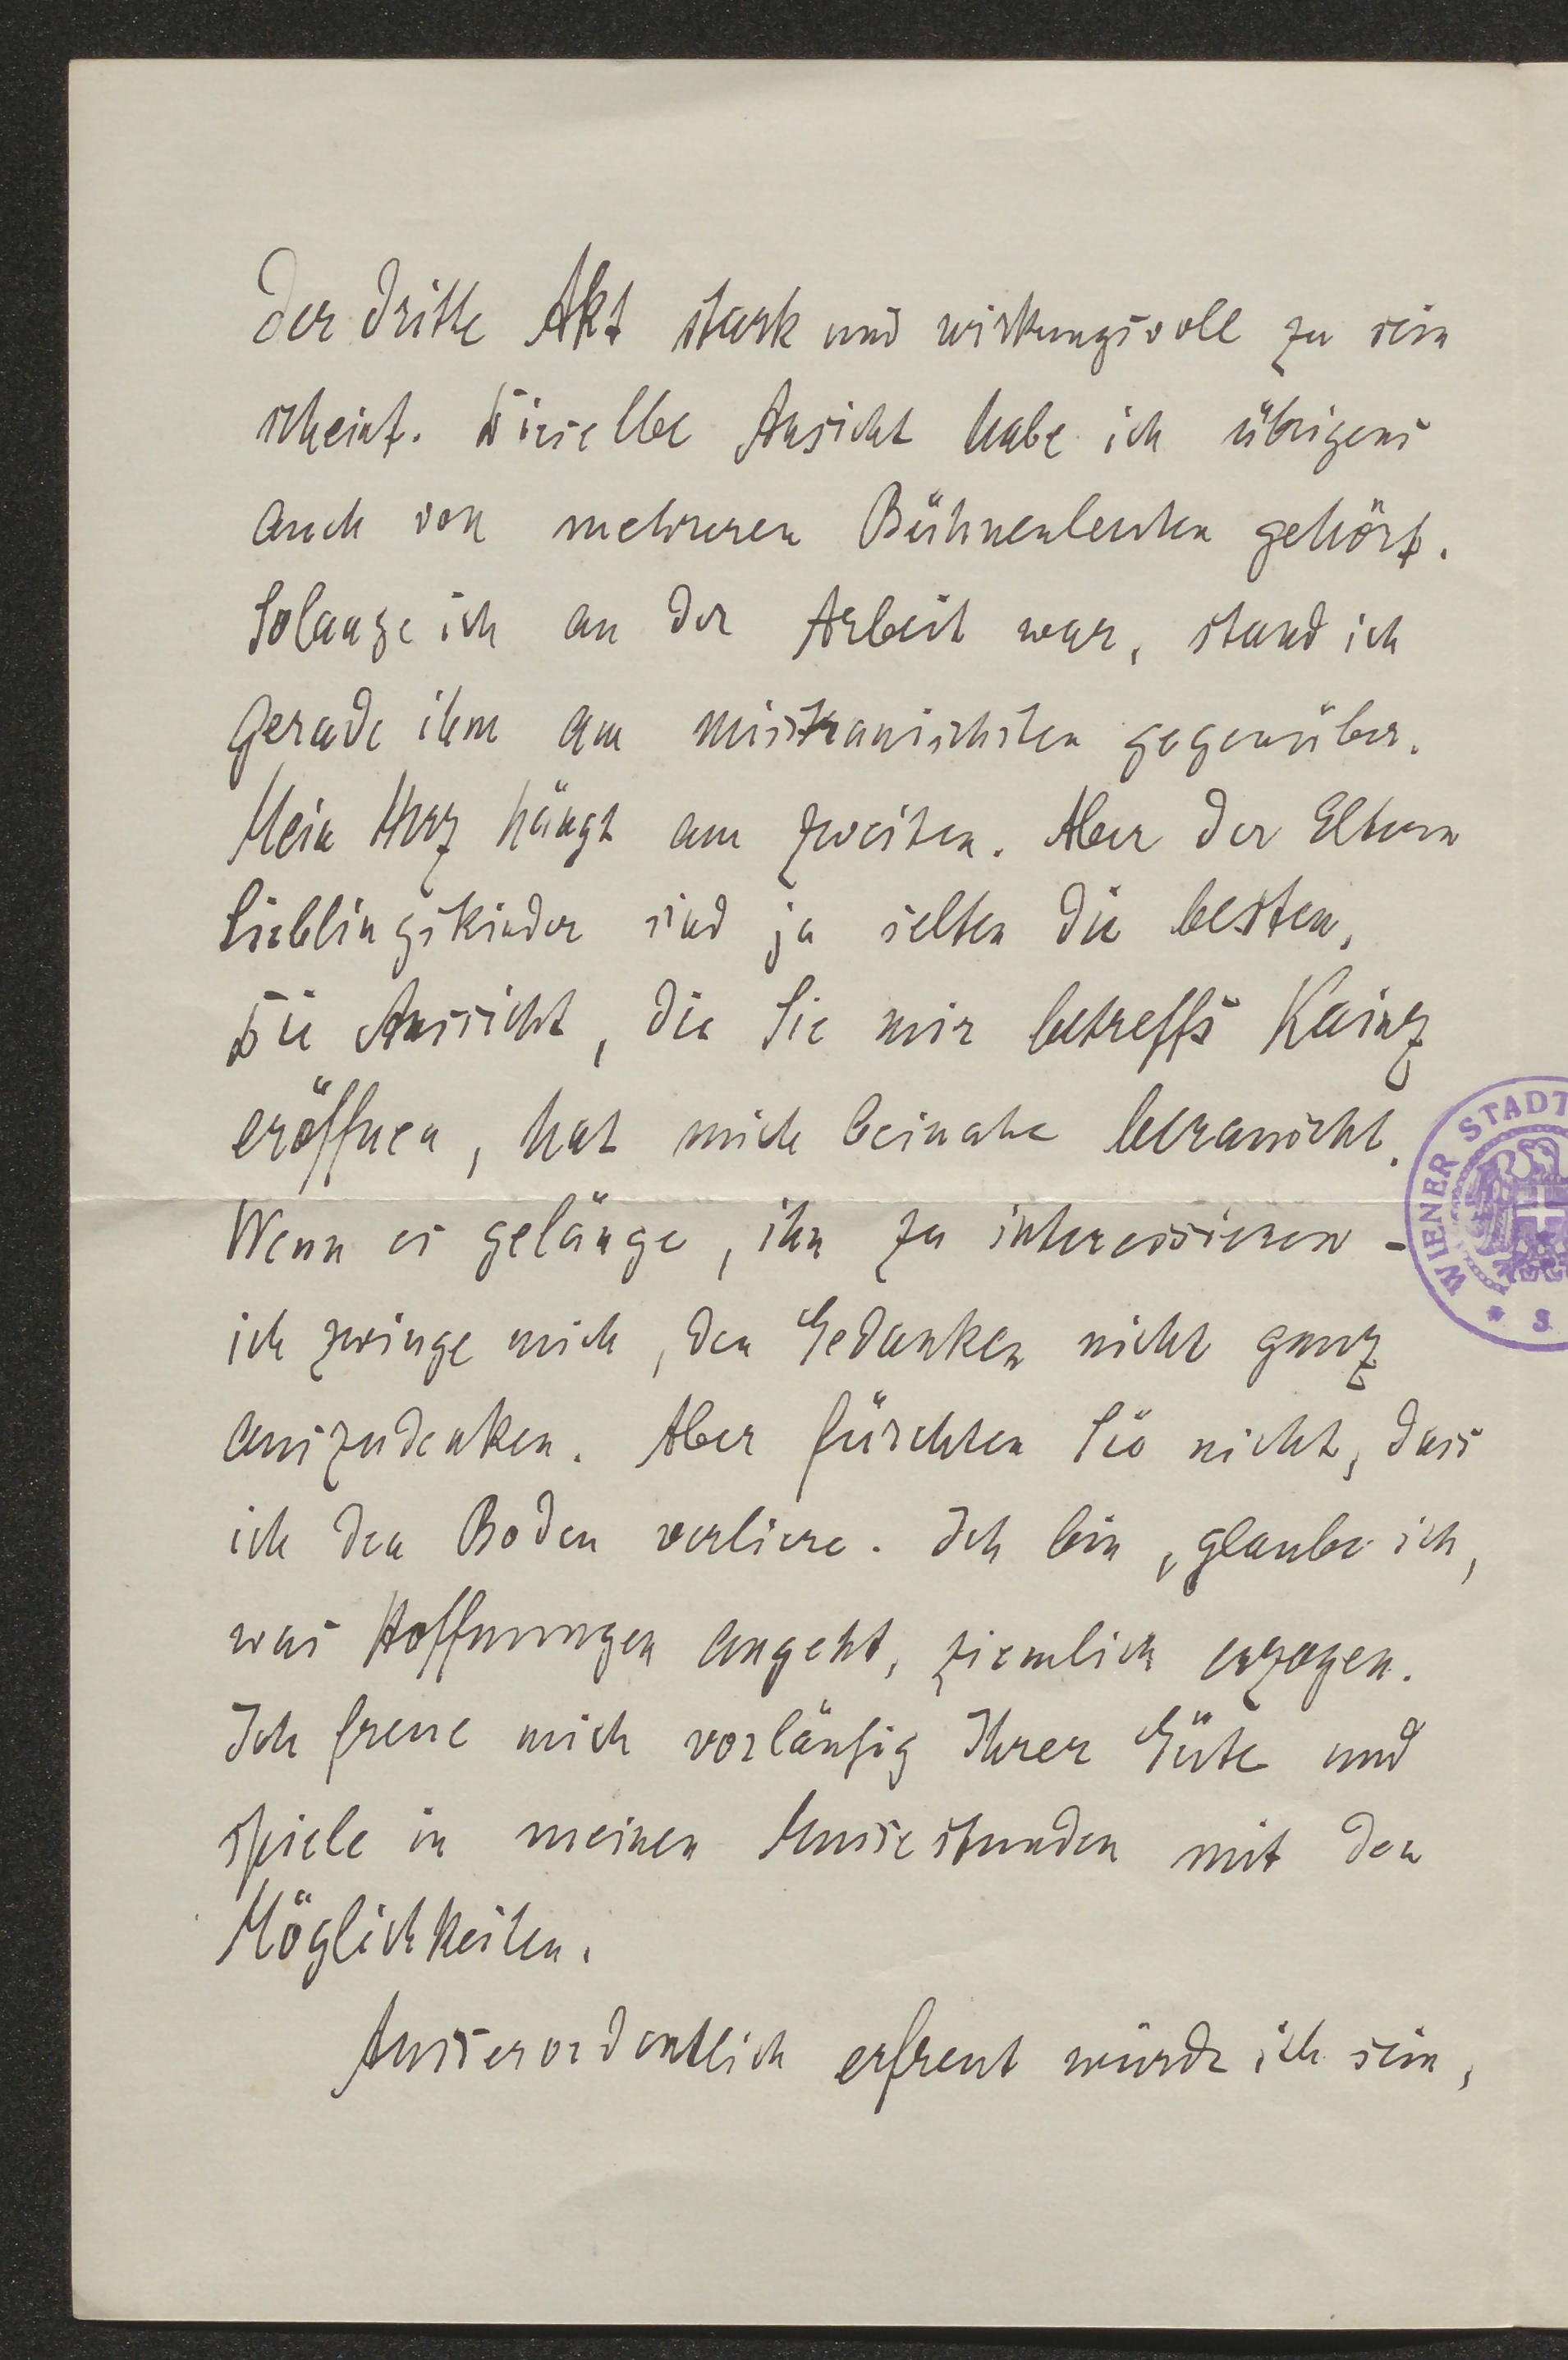 der dritte Akt stark und wirkungsvoll zu sein
scheint. Dieselbe Ansicht habe ich übrigens
auch von mehreren Bühnenleuten gehört.
Solange ich an der Arbeit war, stand ich
gerade ihm am misstrauischsten gegenüber.
Mein Herz hängt am zweiten. Aber der Eltern
Lieblingskinder sind ja selten die besten.
Die Aussicht, die Sie mir betreffs Kainz
eröffnen, hat mich beinahe berauscht.
Wenn es gelänge, ihn zu interessieren -
WIENER STADT
ich zwinge mich, den Gedanken nicht ganz
S.
auszudenken. Aber fürchten Sie nicht, dass
ich den Boden verliere. Ich bin, glaube ich,
was Hoffnungen angeht, ziemlich erzogen.
Ich freue mich vorläufig Ihrer Güte und
spiele in meinen Mussestunden mit den
Möglichkeiten.
Ausserordentlich erfreut würde ich sein,